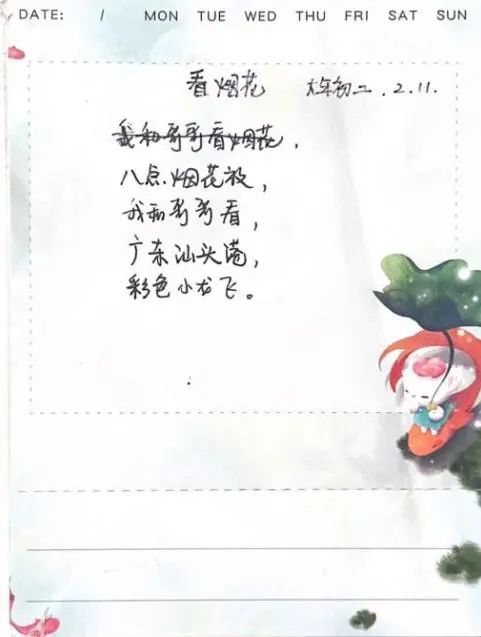 DATE: / MON TUE WED THU FRI SAT SUN
看烟花 大年初二.2.11.
我和哥哥看烟花,
八点烟花放,
我和哥哥看,
广东汕头湾,
彩色小龙飞。